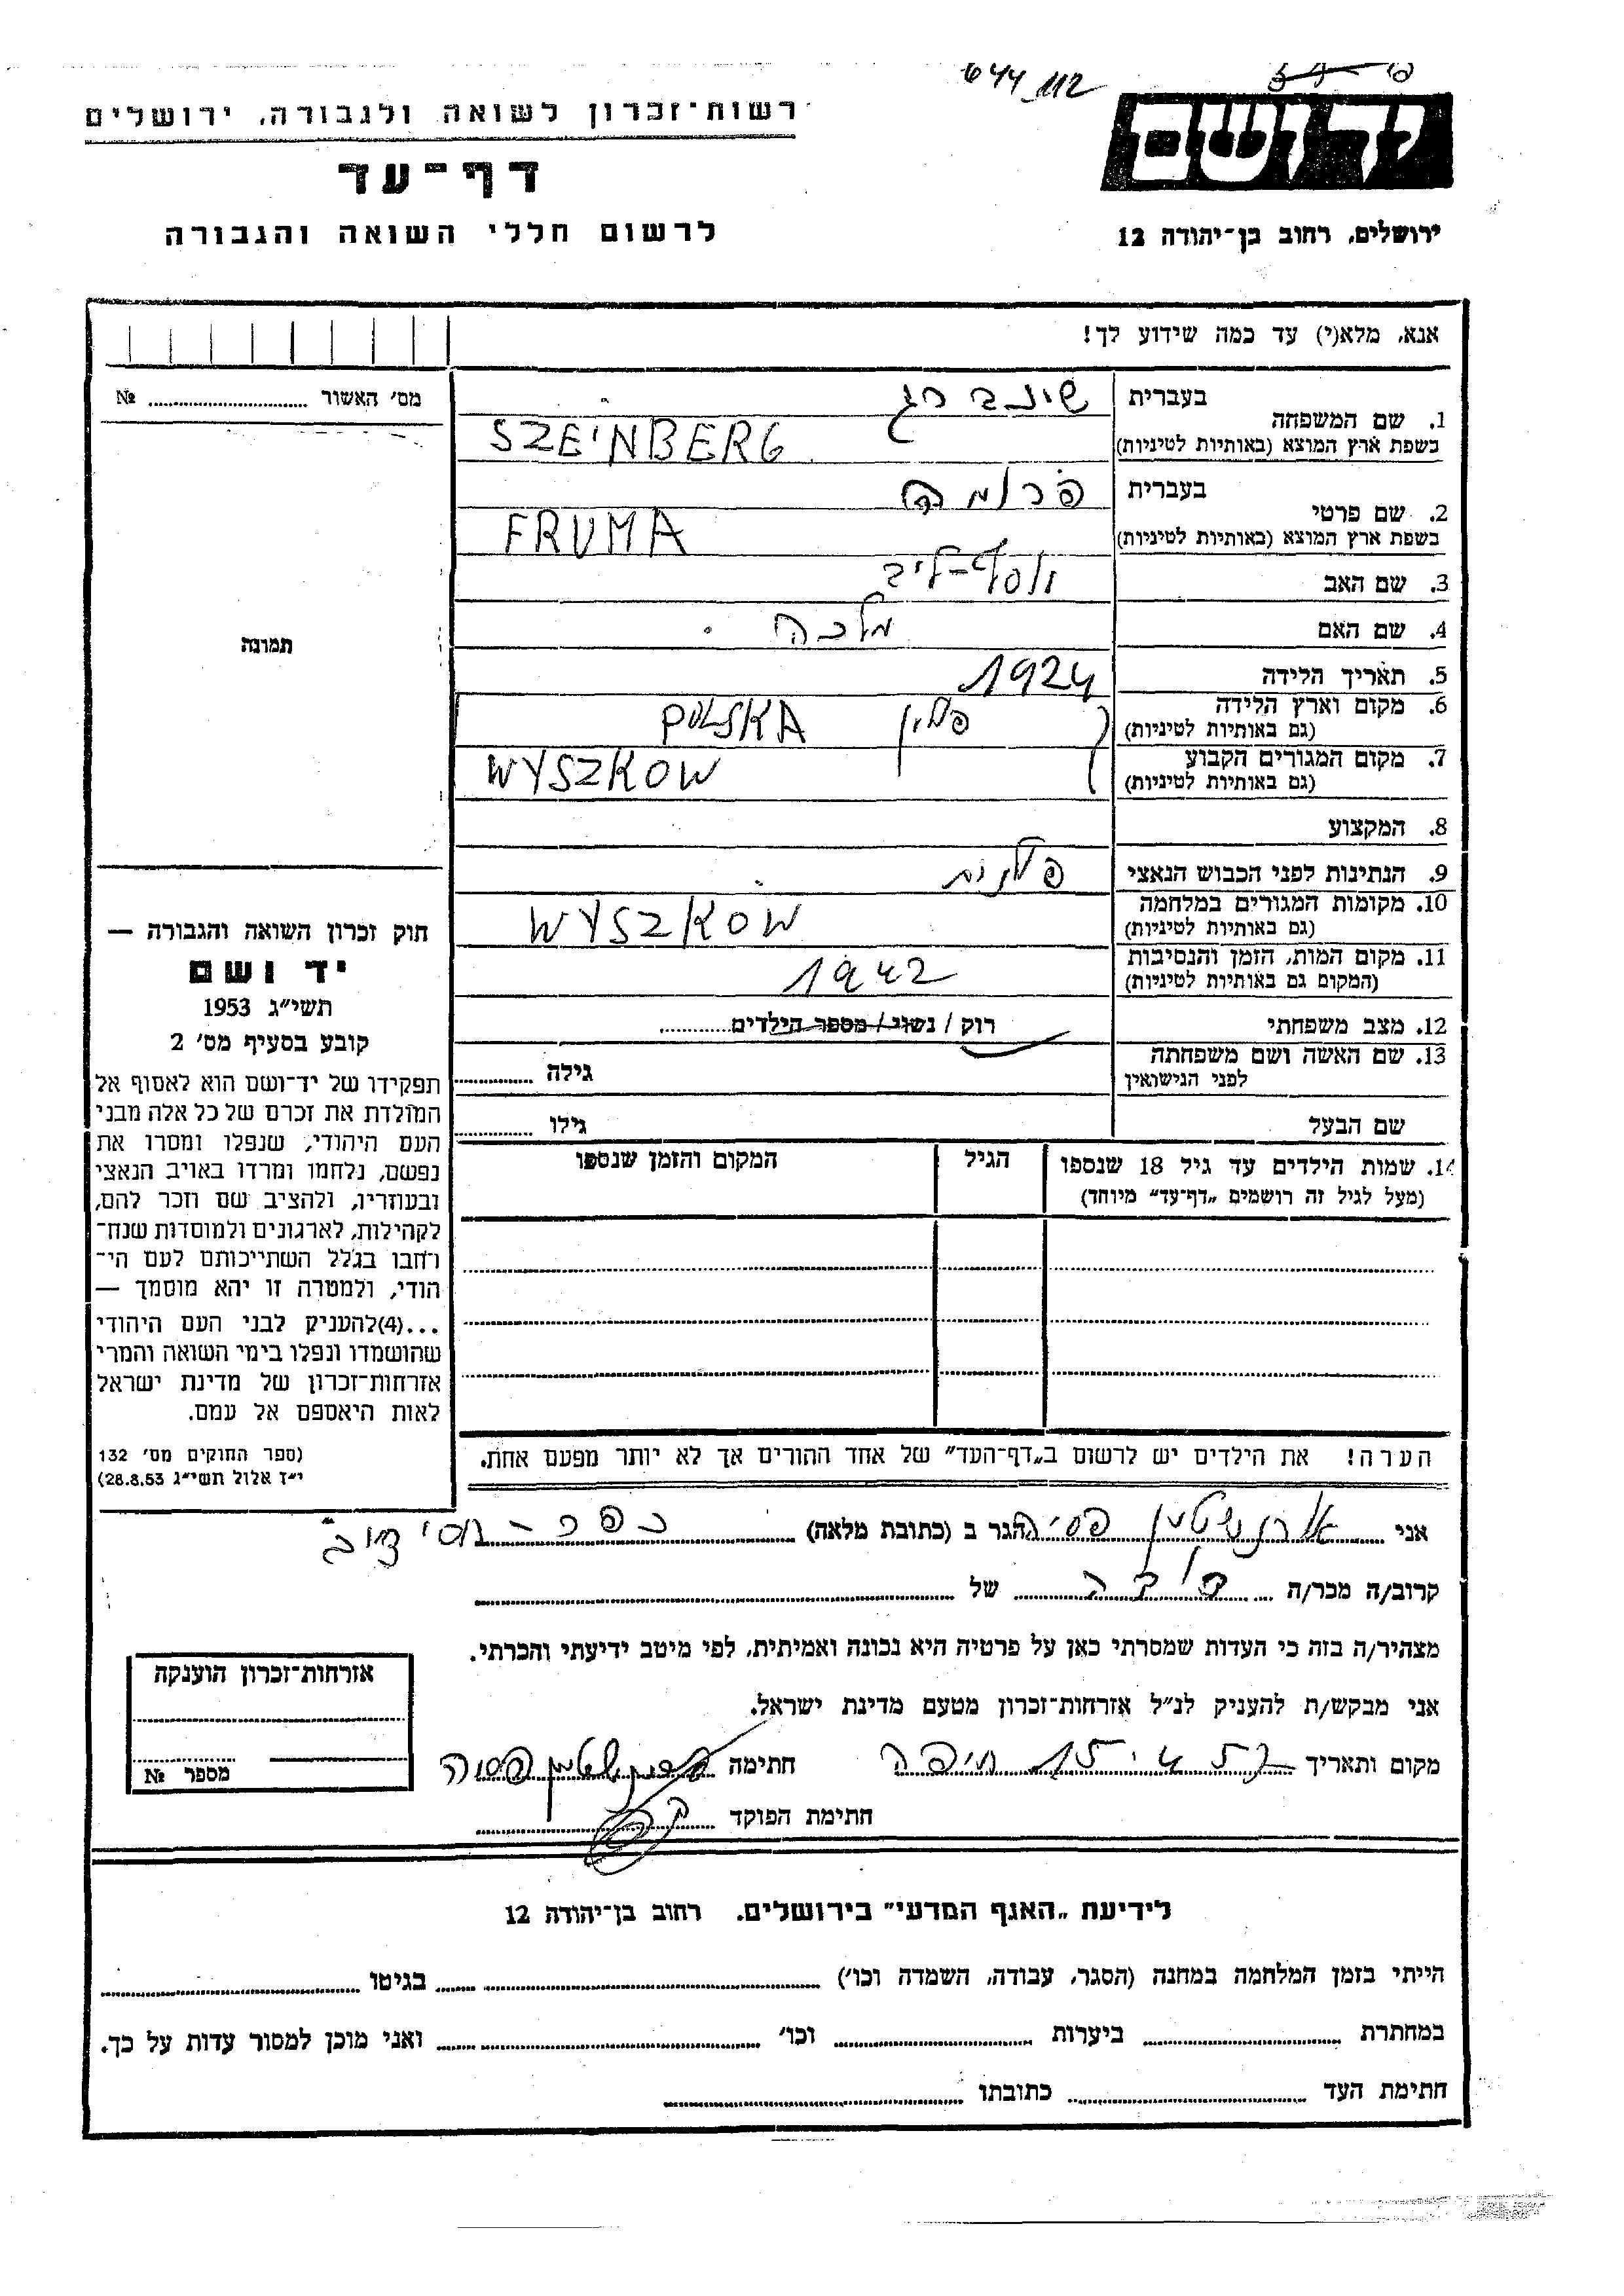 644_112
רשות-זכרון לשואה ולגבורה, ירושלים
דף-עד
לרשום חללי השואה והגבורה
יד ושם
ירושלים, רחוב בן-יהודה 12
אנא, מלא(י) עד כמה שידוע לך!
מס' האשור ........ №
תמונה
1. שם המשפחה
בעברית שינברג
בשפת ארץ המוצא (באותיות לטיניות) SZEINBERG
2. שם פרטי
בעברית פרומה
בשפת ארץ המוצא (באותיות לטיניות) FRUMA
3. שם האב יוסף-לייב
4. שם האם מלכה
5. תאריך הלידה 1924
6. מקום וארץ הלידה
(גם באותיות לטיניות) פולין POLSKA
7. מקום המגורים הקבוע
(גם באותיות לטיניות) WYSZKOW
8. המקצוע
9. הנתינות לפני הכבוש הנאצי פולנית
10. מקומות המגורים במלחמה
(גם באותיות לטיניות) WYSZKOW
11. מקום המות, הזמן והנסיבות
(המקום גם באותיות לטיניות) 1942
12. מצב משפחתי רוק / נשוי / מספר הילדים ........
13. שם האשה ושם משפחתה
לפני הנישואין גילה ........
שם הבעל גילו ........
14. שמות הילדים עד גיל 18 שנספו הגיל המקום והזמן שנספו
(מעל לגיל זה רושמים „דף-עד" מיוחד)
חוק זכרון השואה והגבורה —
יד ושם
תשי"ג 1953
קובע בסעיף מס' 2
תפקידו של יד-ושם הוא לאסוף אל
המולדת את זכרם של כל אלה מבני
העם היהודי, שנפלו ומסרו את
נפשם, נלחמו ומרדו באויב הנאצי
ובעוזריו, ולהציב שם וזכר להם,
לקהילות, לארגונים ולמוסדות שנח-
רחבו בגלל השתייכותם לעם הי-
הודי, ולמטרה זו יהא מוסמך —
...(4) להעניק לבני העם היהודי
שהושמדו ונפלו בימי השואה והמרי
אזרחות-זכרון של מדינת ישראל
לאות היאספם אל עמם.
(ספר החוקים מס' 132
י"ז אלול תשי"ג 28.8.53)
הערה! את הילדים יש לרשום ב„דף-העד" של אחד ההורים אך לא יותר מפעם אחת.
אני ארנשטיין פסיה הגר ב (כתובת מלאה) כפר-חסידים ב'
קרוב/ה מכר/ה ........ של ........
מצהיר/ה בזה כי העדות שמסרתי כאן על פרטיה היא נכונה ואמיתית, לפי מיטב ידיעתי והכרתי.
אני מבקש/ת להעניק לנ"ל אזרחות-זכרון מטעם מדינת ישראל.
מקום ותאריך ........ חיפה חתימה ארנשטיין פסיה
חתימת הפוקד ........
אזרחות-זכרון הוענקה
מספר №
לידיעת „האגף המדעי" בירושלים. רחוב בן-יהודה 12
הייתי בזמן המלחמה במחנה (הסגר, עבודה, השמדה וכו') ........ בגיטו ........
במחתרת ........ ביערות ........ וכו' ........ ואני מוכן למסור עדות על כך.
חתימת העד ........ כתובתו ........